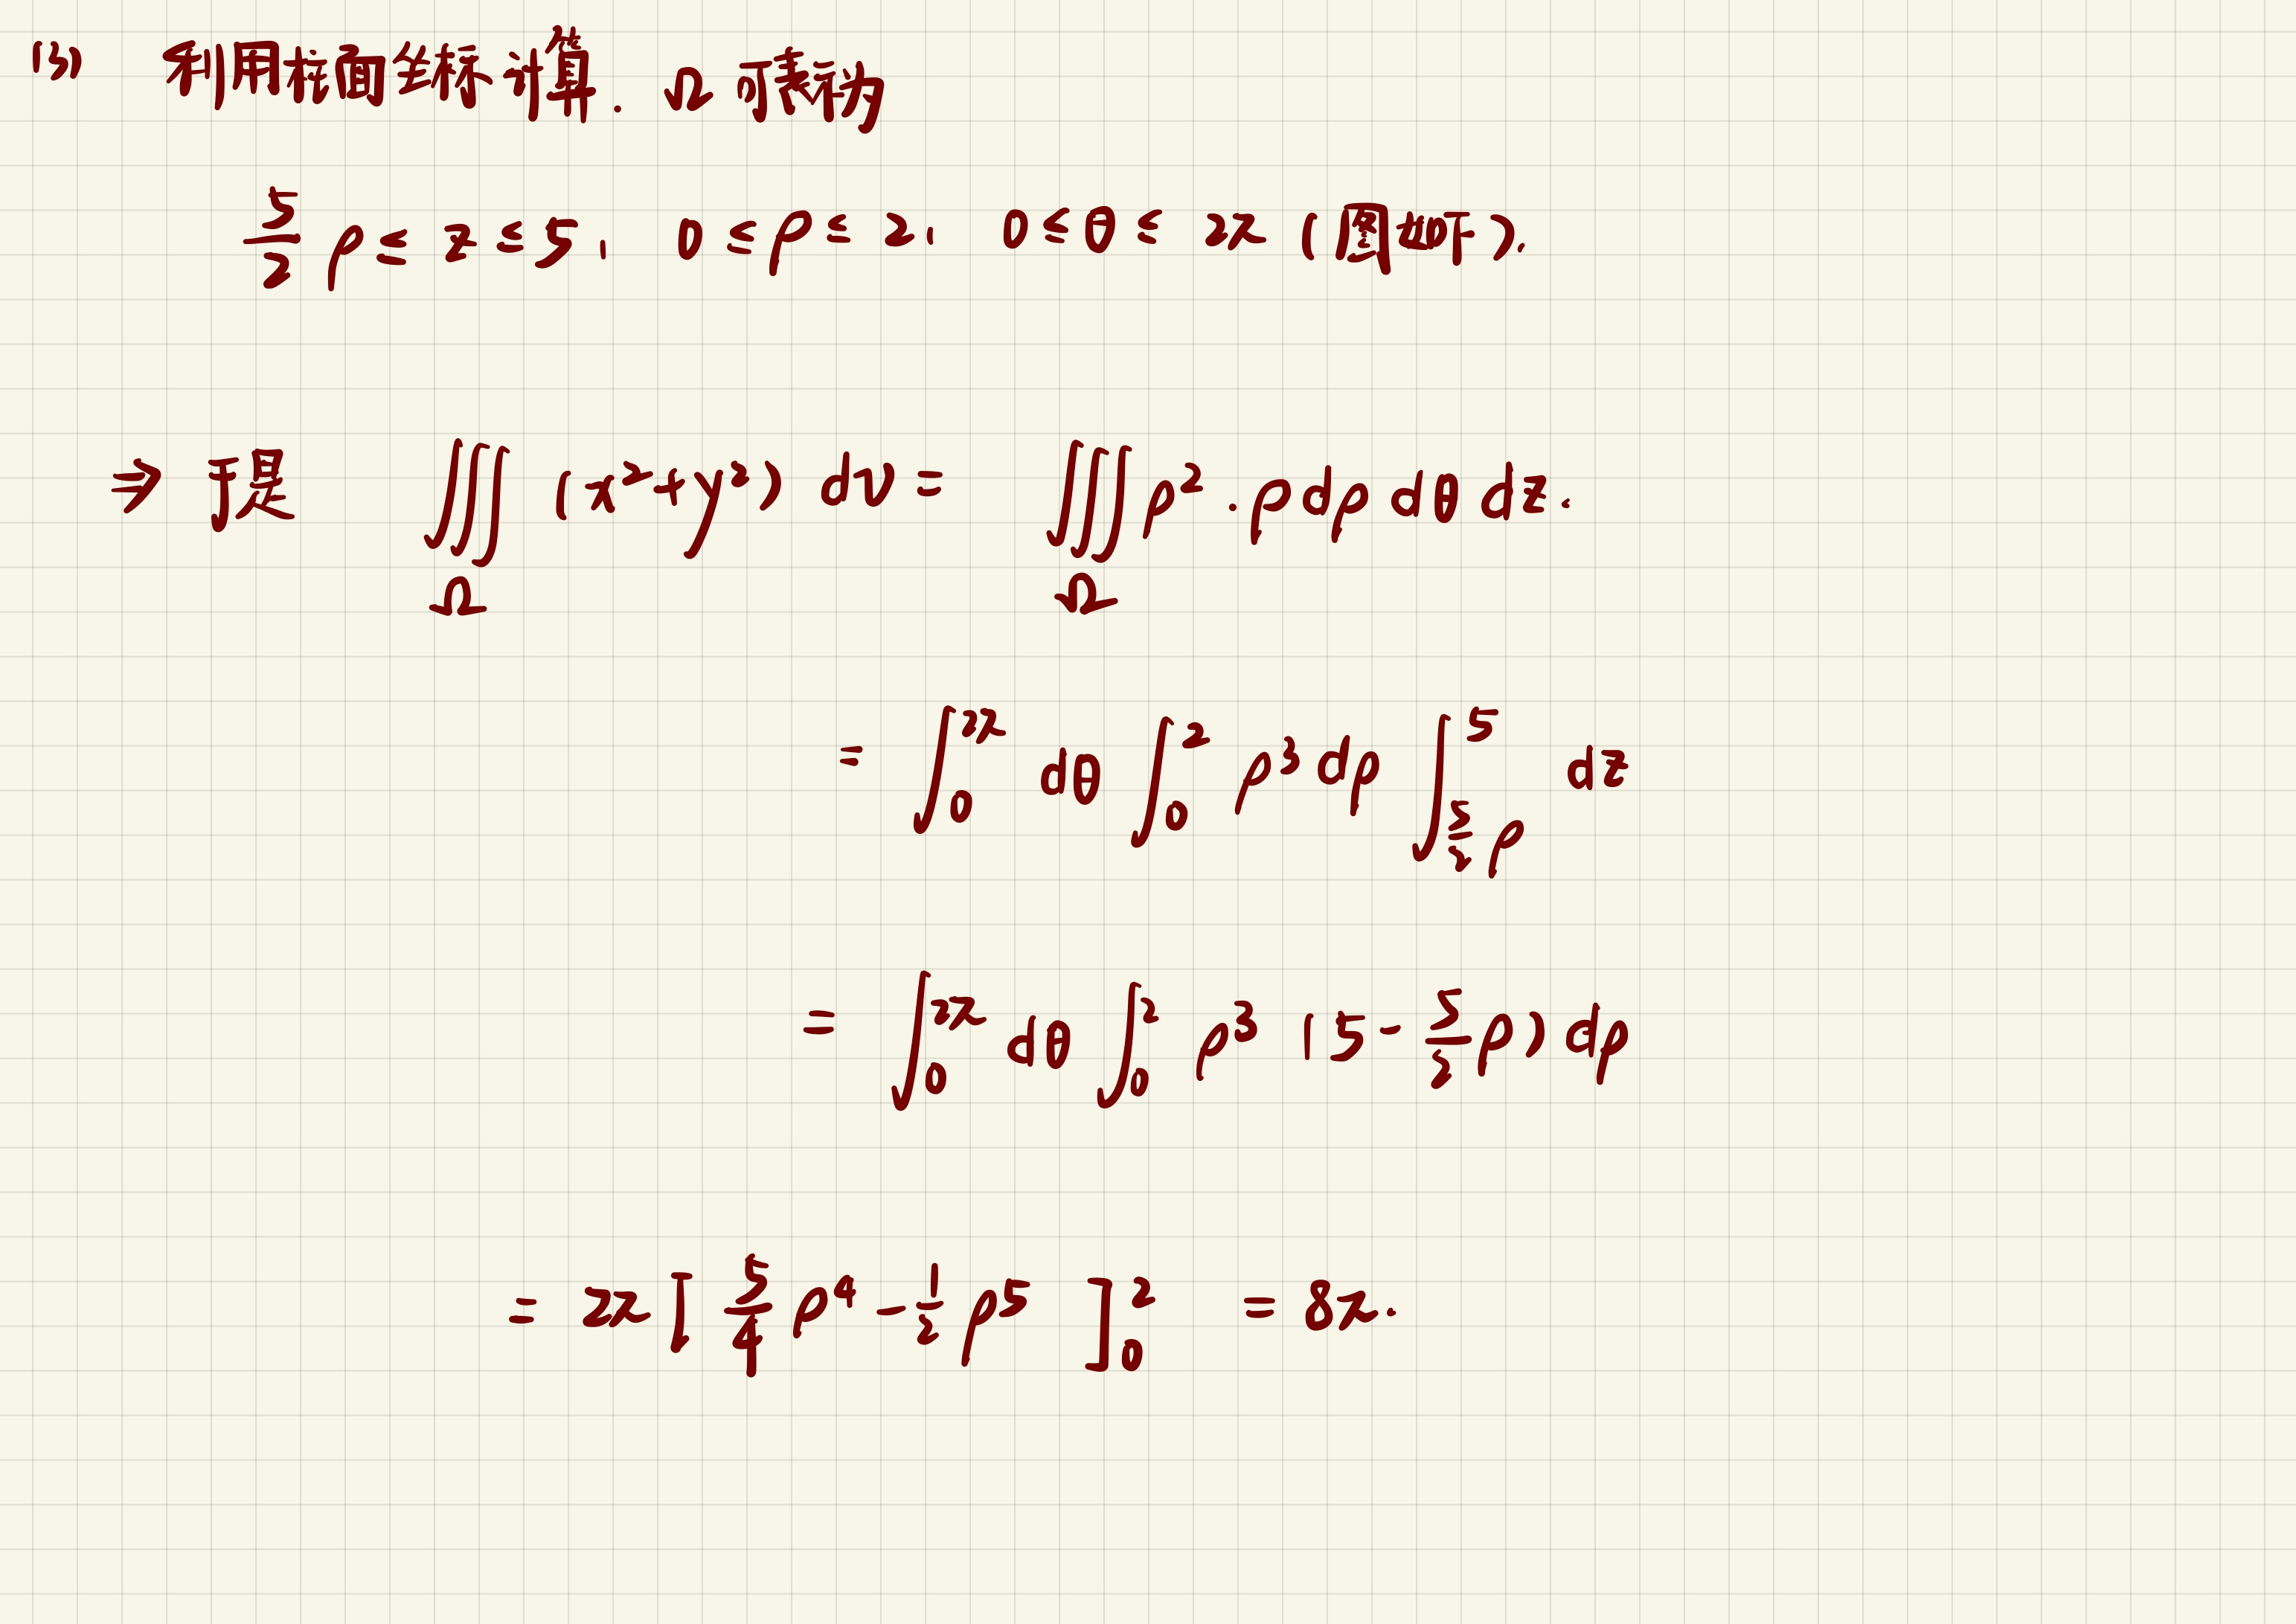 (3) 利用柱面坐标计算. Ω 可表示为
5/2 ρ ≤ z ≤ 5, 0 ≤ ρ ≤ 2, 0 ≤ θ ≤ 2π (图如下).
⇒ 于是 ∭_Ω (x²+y²) dv = ∭_Ω ρ²·ρ dρ dθ dz.
= ∫_0^{2π} dθ ∫_0^2 ρ³ dρ ∫_{5/2 ρ}^5 dz
= ∫_0^{2π} dθ ∫_0^2 ρ³ (5 - 5/2 ρ) dρ
= 2π [ 5/4 ρ⁴ - 1/2 ρ⁵ ]_0^2 = 8π.